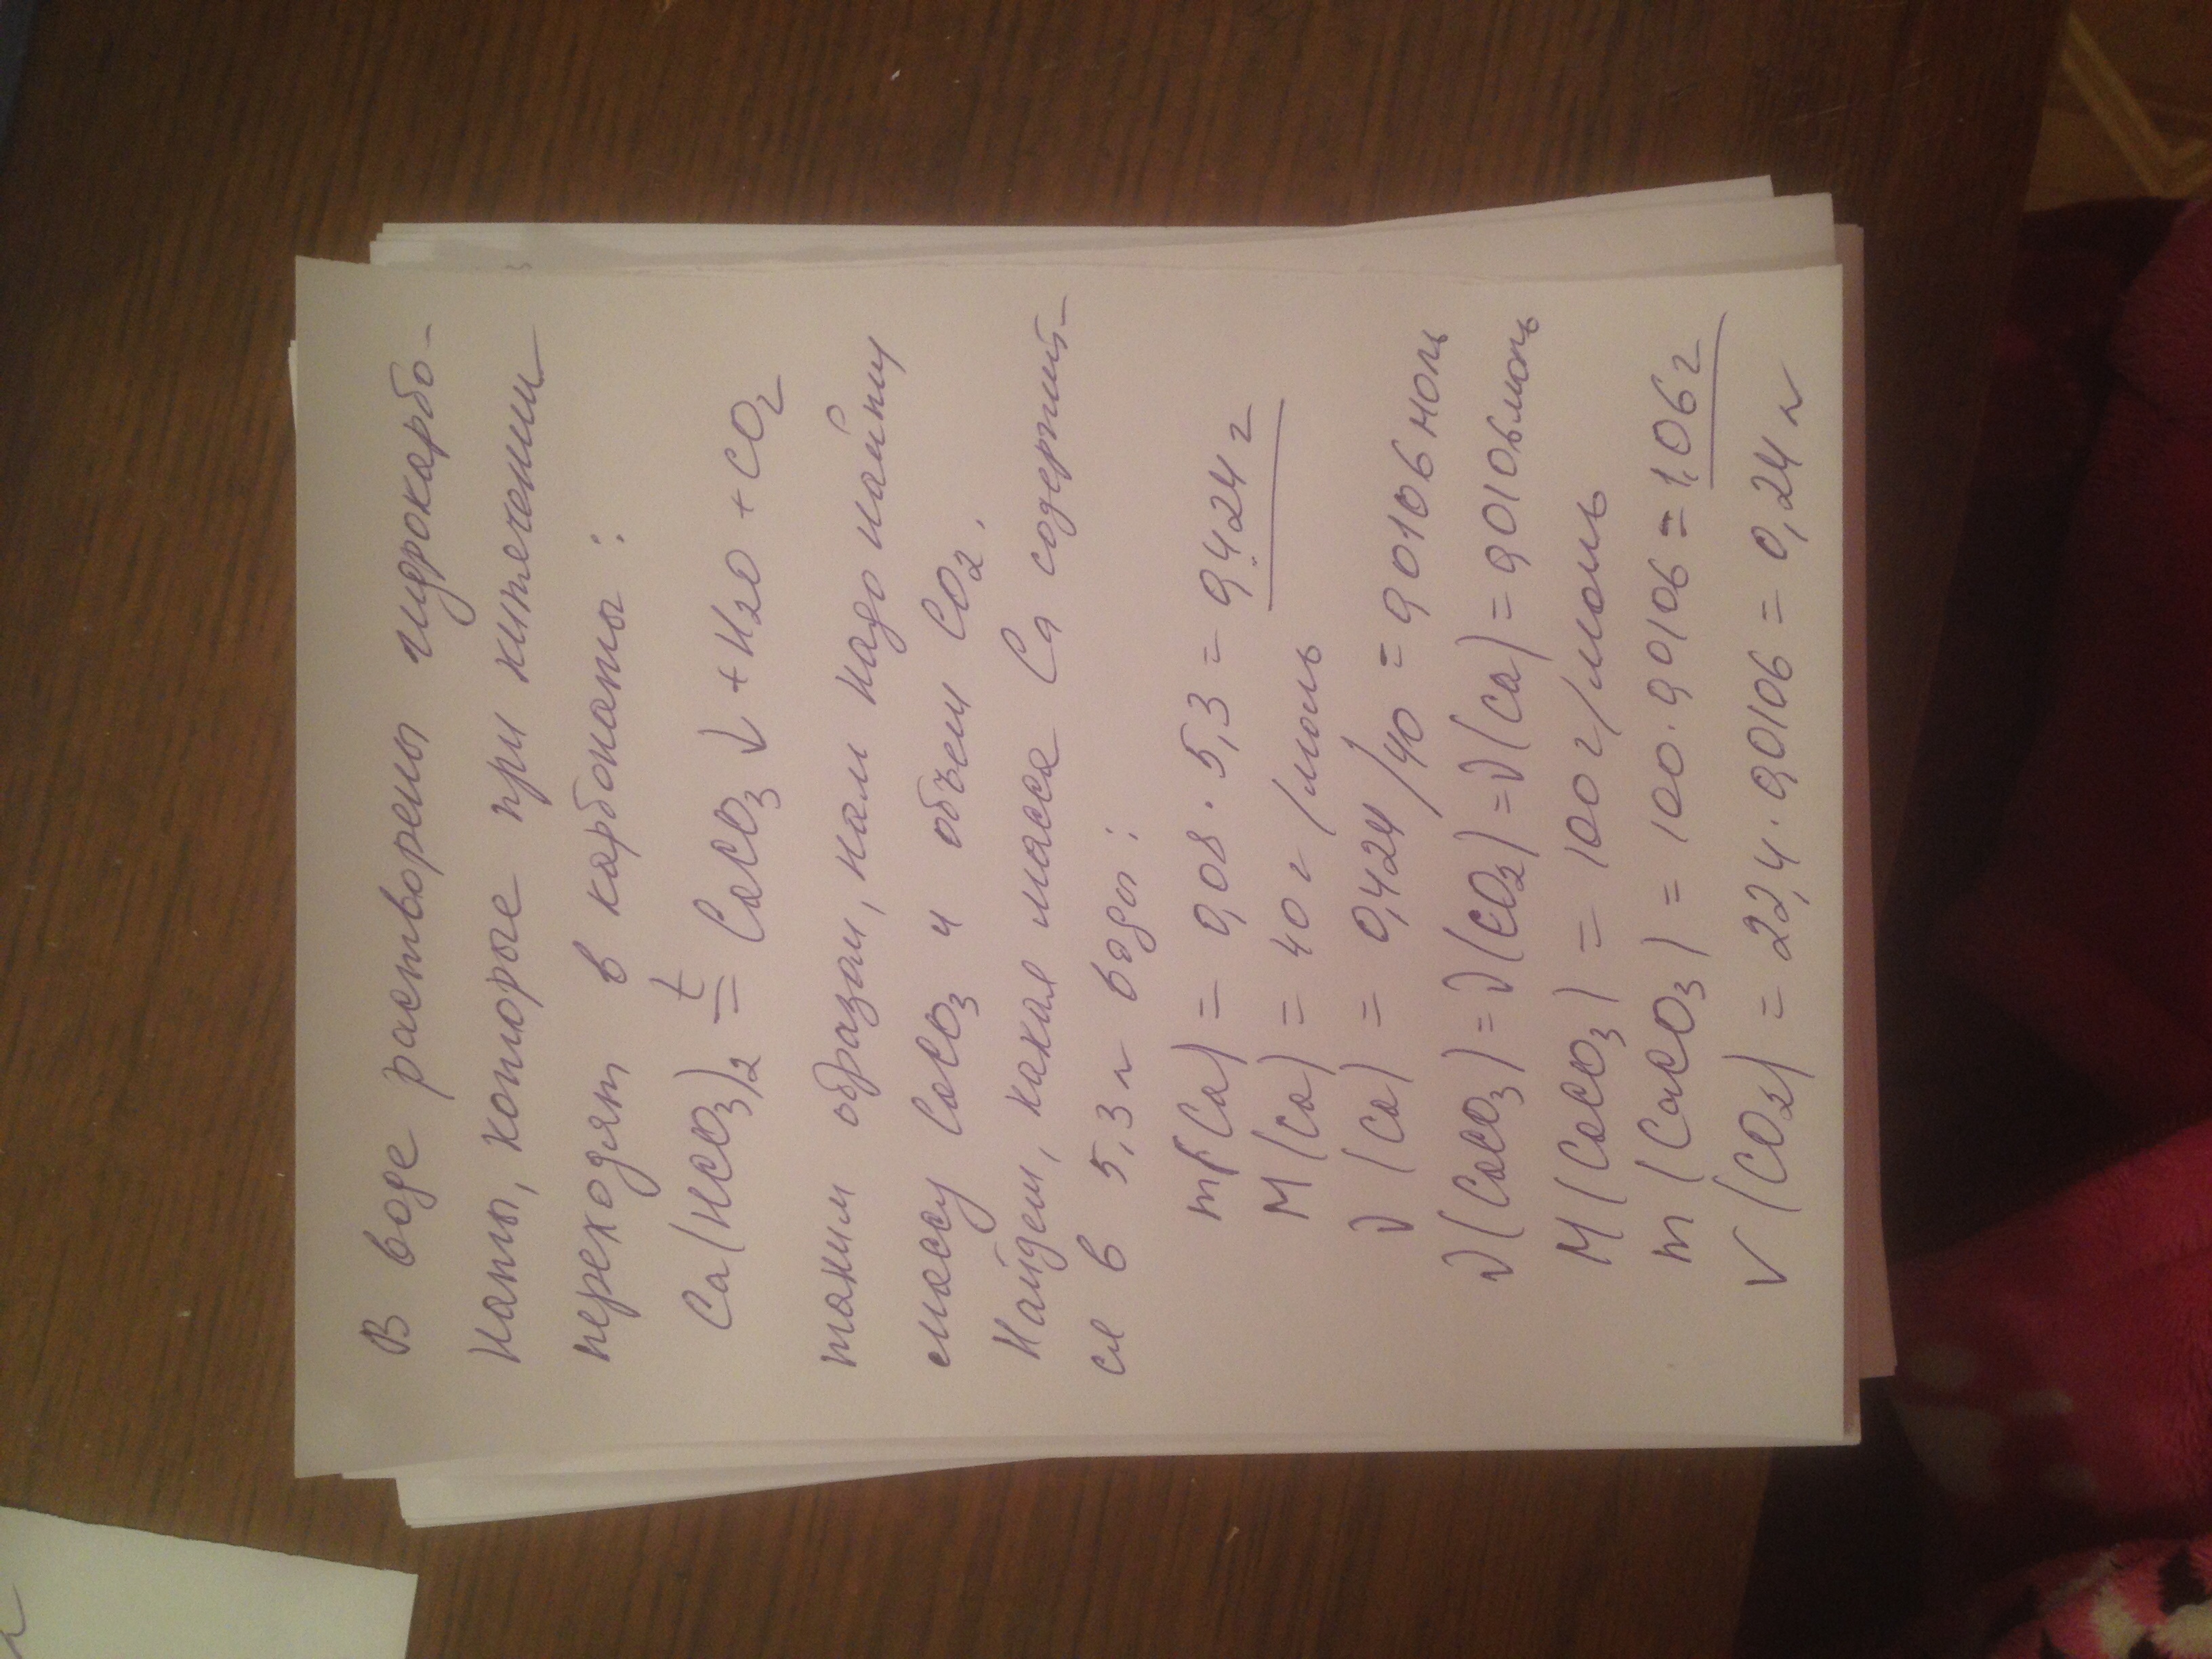 В воде растворены гидрокарбо-
наты, которые при кипячении
переходят в карбонаты:
Ca(HCO3)2 =t= CaCO3↓ + H2O + CO2
таким образом, нам надо найти
массу CaCO3 и объем CO2.
Найдем, какая масса Ca содержит-
ся в 5,3 л воды:
m(Ca) = 0,08 · 5,3 = 0,424 г
M(Ca) = 40 г/моль
ν(Ca) = 0,424/40 = 0,0106 моль
ν(CaCO3) = ν(CO2) = ν(Ca) = 0,0106 моль
M(CaCO3) = 100 г/моль
m(CaCO3) = 100 · 0,0106 = 1,06 г
V(CO2) = 22,4 · 0,0106 = 0,24 л